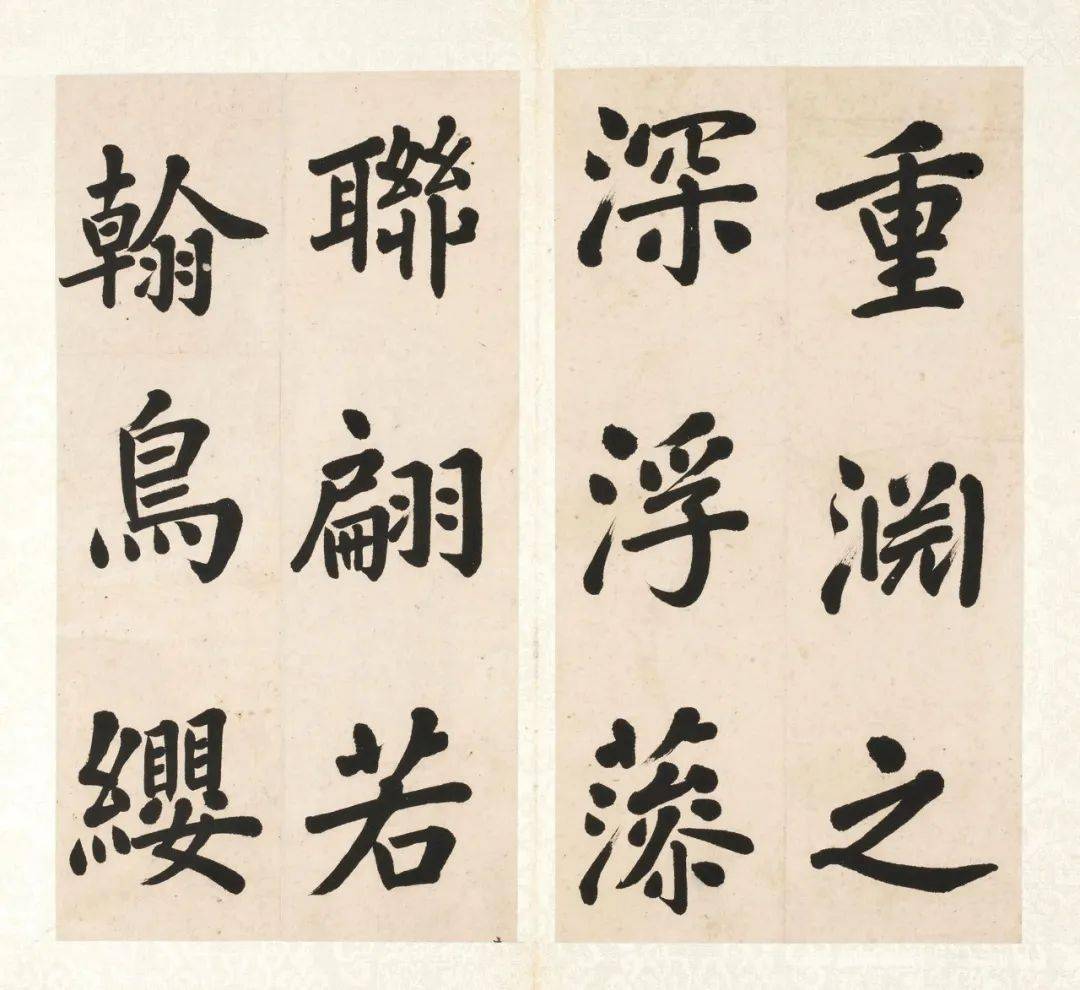 重淵之
深浮藻
聯翩若
翰鳥纓